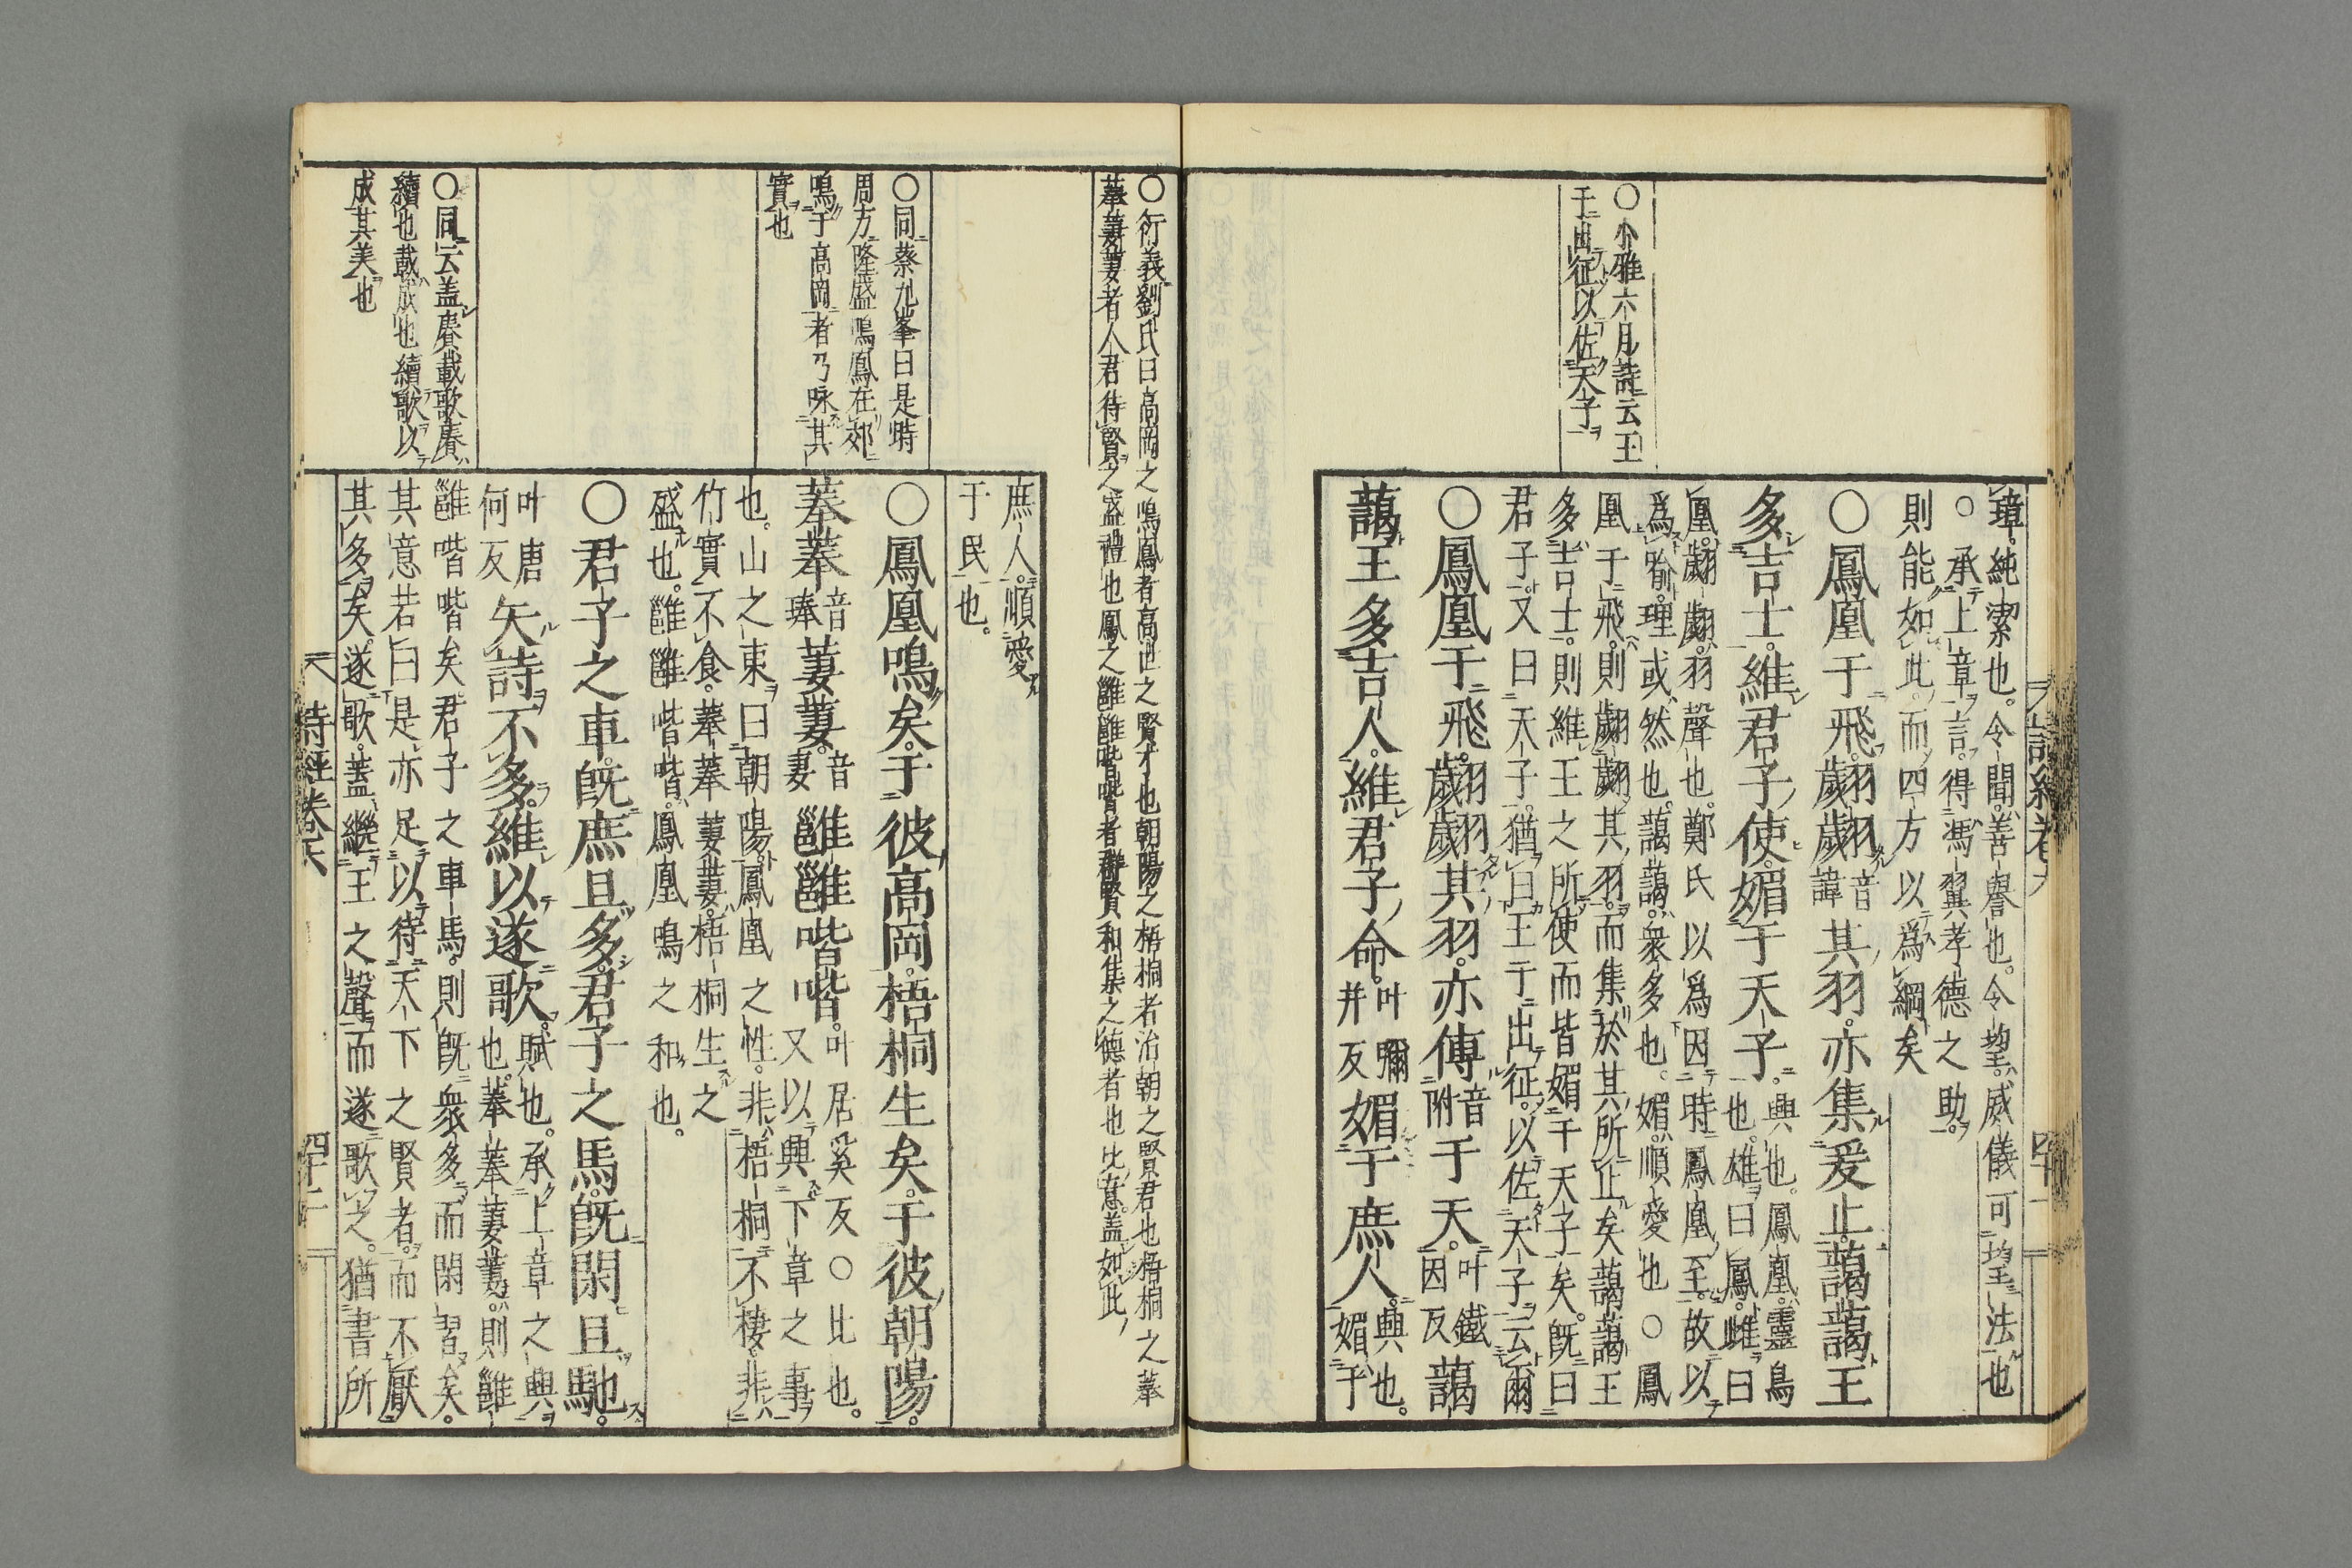 ○小雅六月詩云王
于出征以佐天子
璋純潔也令聞善譽也令望威儀可望法也
○承上章言得馮翼孝德之助
則能如此而四方以爲綱矣
○鳳凰于飛翽翽音諱其羽亦集爰止藹藹王
多吉士維君子使媚于天子興也鳳凰靈鳥也雄曰鳳雌曰
凰翽翽羽聲也鄭氏以爲因時鳳凰至故以
爲喻理或然也藹藹衆多也媚順愛也○鳳
凰于飛則翽翽其羽而集於其所止矣藹藹王
多吉士則維王之所使而皆媚于天子矣既曰
君子又曰天子猶曰王于出征以佐天子云爾
○鳳凰于飛翽翽其羽亦傅音附于天叶鐵因反藹
藹王多吉人維君子命叶彌并反媚于庶人興也媚于
○衍義劉氏曰高岡之鳴鳳者高世之賢才也朝陽之梧桐者治朝之賢君也梧桐之菶
菶萋萋者人君待賢之盛禮也鳳之雝雝喈喈者群賢和集之德者也比意盖如此
庶人順愛
于民也
○同蔡九峯曰是時
周方隆盛鳴鳳在郊
鳴于高岡者乃咏其
實也
○鳳凰鳴矣于彼高岡梧桐生矣于彼朝陽
菶菶音琫萋萋音妻雝雝喈喈叶居奚反○比也又以興下章之事
也山之東曰朝陽鳳凰之性非梧桐不棲非
竹實不食菶菶萋萋梧桐生之
盛也雝雝喈喈鳳凰鳴之和也
○君子之車既庶且多君子之馬既閑且馳
叶唐何反矢詩不多維以遂歌賦也承上章之興也菶菶萋萋則雝
○同云盖賡載歌賡
續也載成也續歌以
成其美也
雝喈喈矣君子之車馬則既衆多而閑習矣
其意若曰是亦足以待天下之賢者而不厭
其多矣遂歌蓋繼王之聲而遂歌之猶書所
詩經卷六
四十二